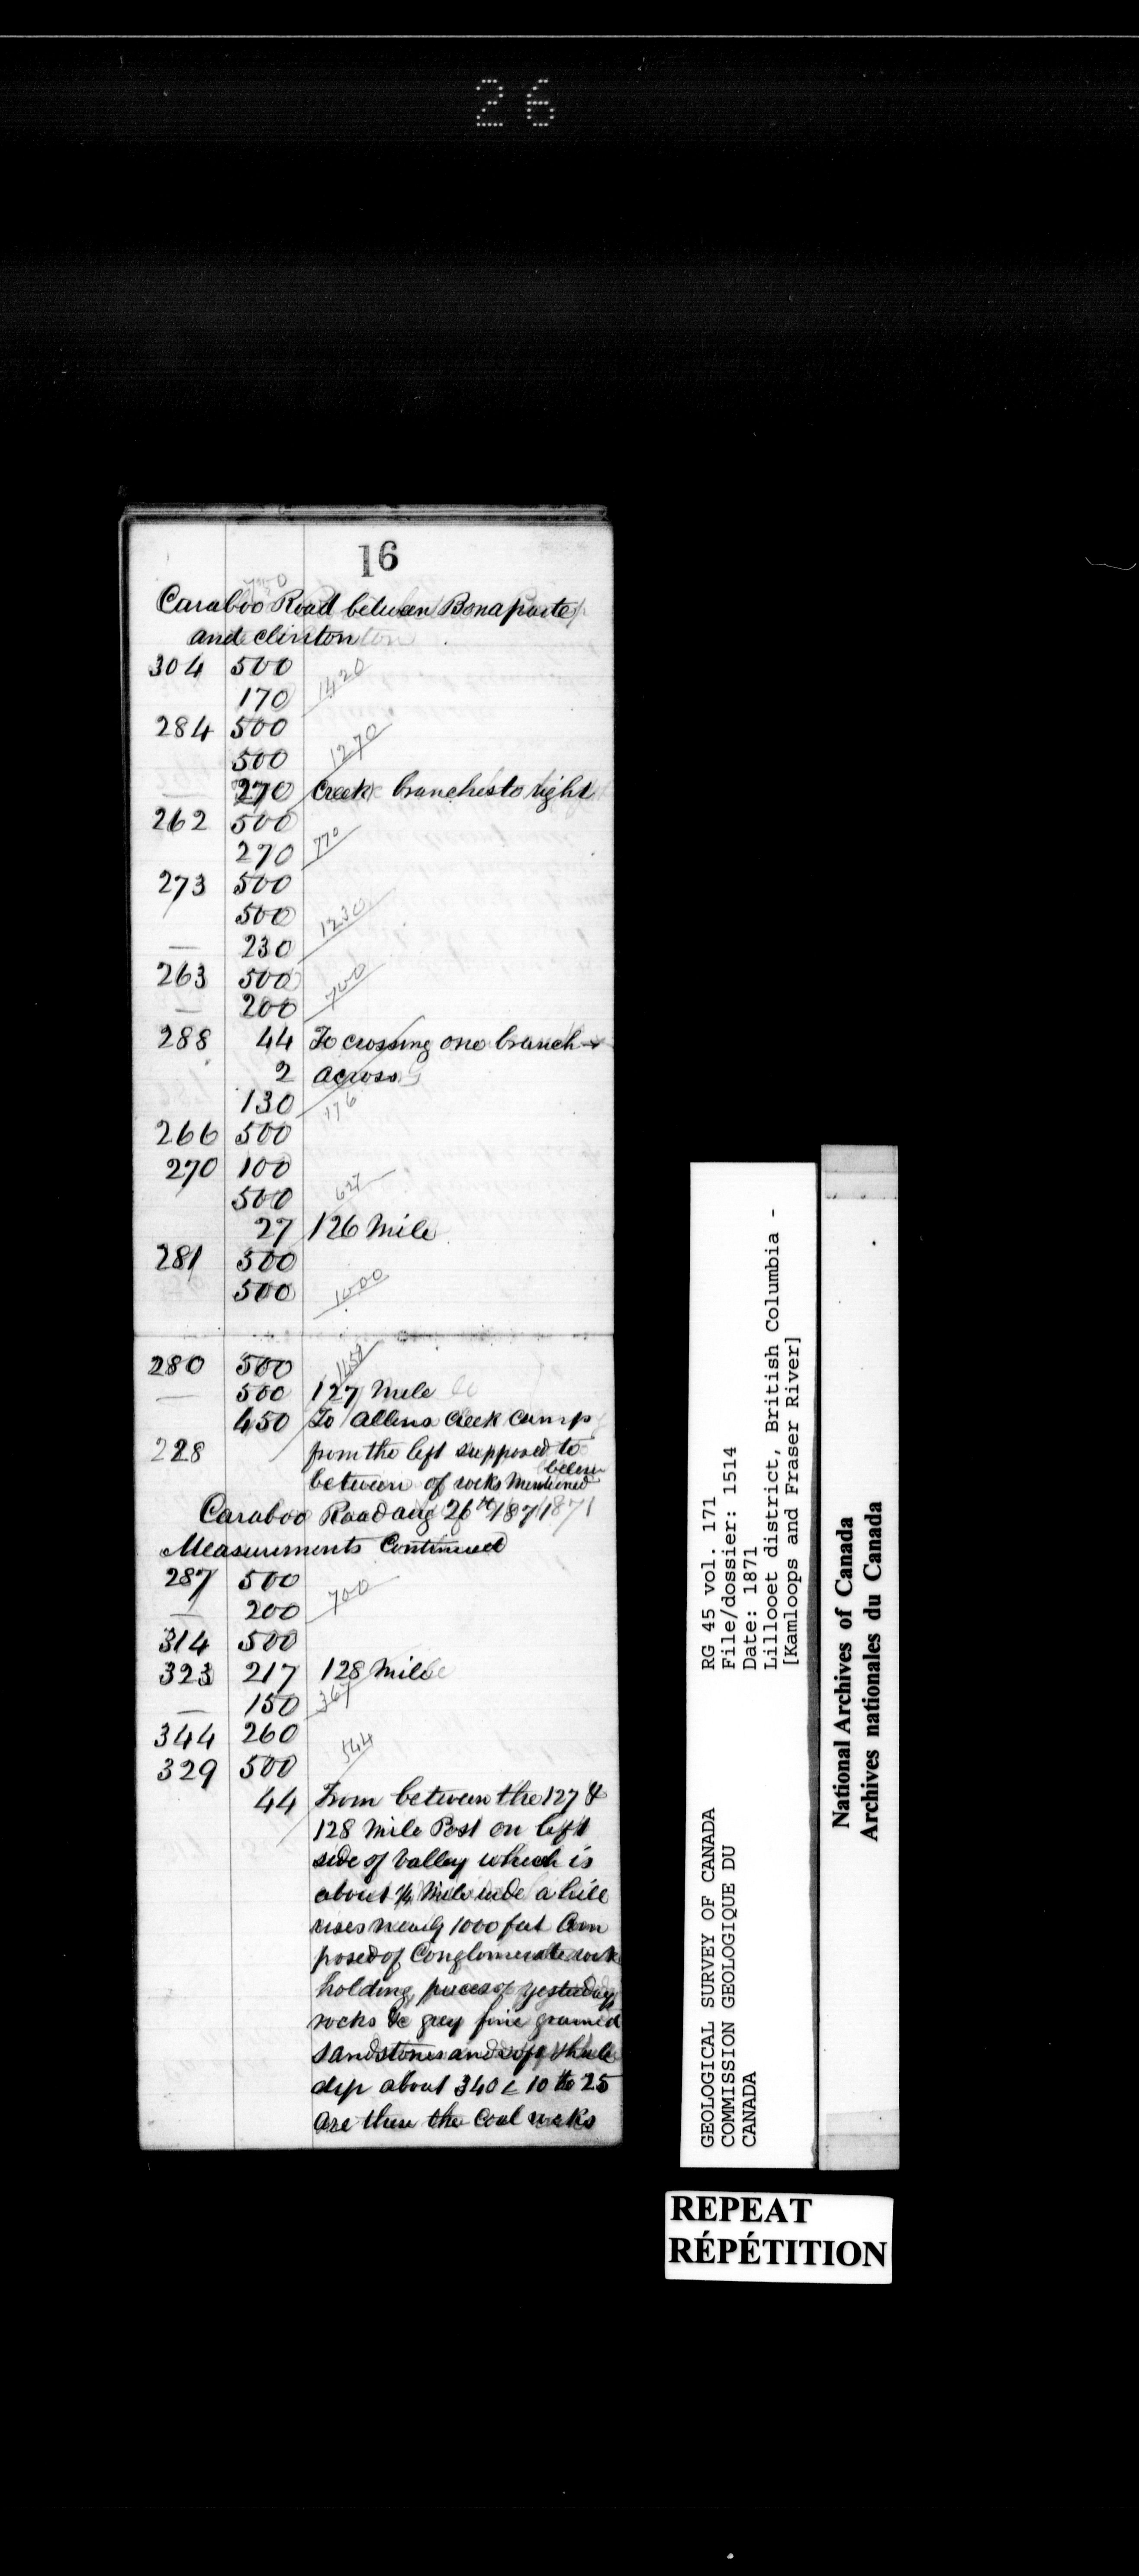 26
16
750
Caraboo Road between Bonaparte
and clinton
304 500
170 1420
284 500
500 1270
270 Creek branches to right
262 500
270 770
273 500
500 1230
— 230
263 500
— 200 700
288 44 To crossing one branch
2 across
130 176
266 500
270 100
500 627
27 126 Mile
281 500
500 1000
280 500 1450
— 500 127 Mile
450 To Allens Creek Camp
228 from the left supposed to
below
between of rocks Mentioned
Caraboo Road aug 26th 1871
Measurements Continued
287 500
— 200 700
314 500
323 217 128 Mile
— 150 367
344 260
329 500 544
44 From between the 127 &
128 Mile Post on left
side of Valley which is
about ¼ Mile wide a hill
rises nearly 1000 feet Com
posed of Conglomerate rock
holding pieces of yesterdays
rocks &c grey fine grained
Sandstones and soft shale
dip about 340 < 10 to 25
Are these the Coal rocks
RG 45 vol. 171
File/dossier: 1514
Date: 1871
Lillooet district, British Columbia -
[Kamloops and Fraser River]
GEOLOGICAL SURVEY OF CANADA
COMMISSION GEOLOGIQUE DU
CANADA
National Archives of Canada
Archives nationales du Canada
REPEAT
RÉPÉTITION